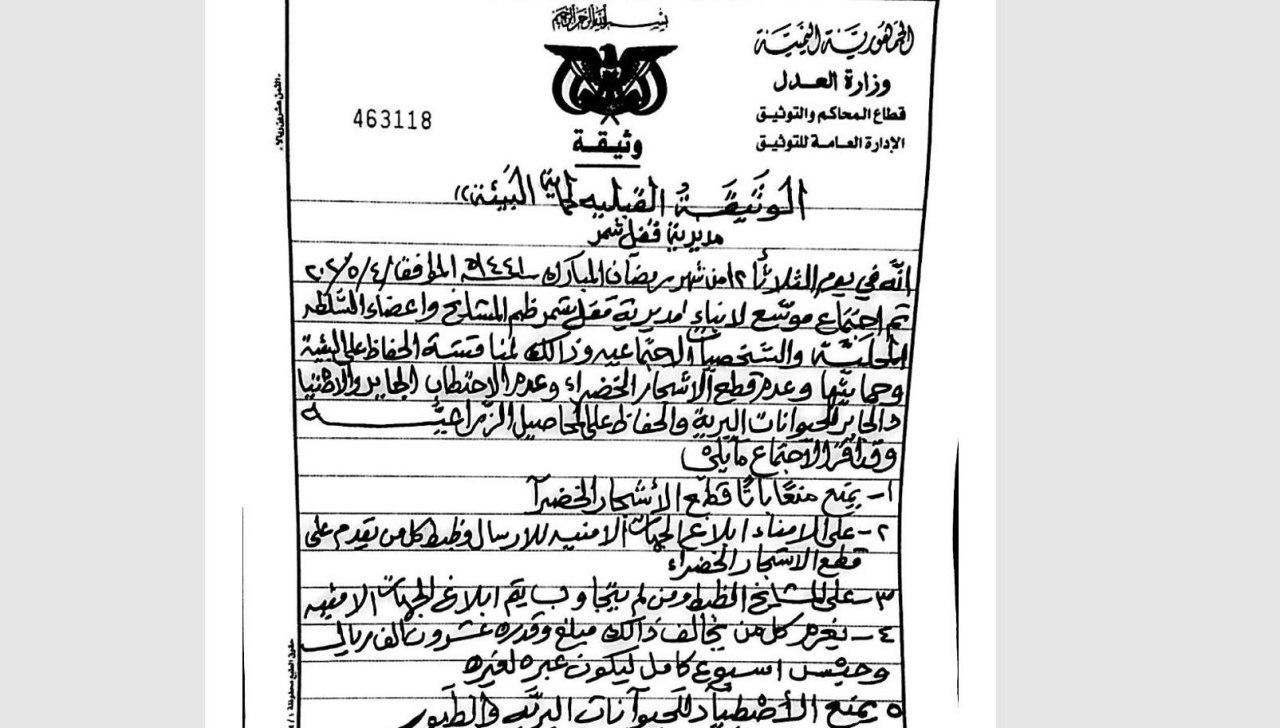 بسم الله الرحمن الرحيم
الجمهورية اليمنية
وزارة العدل
قطاع المحاكم والتوثيق
الإدارة العامة للتوثيق
463118
وثيقة
الوثيقة القبليه لحماية البيئة»
مديرية قفل شمر
انه في يوم الثلاثاء ١٢ من شهر رمضان المبارك سنة ١٤٤١ه الموافق ٢٠٢٠/٥/٤
تم اجتماع موسع لابناء مديرية قفل شمر ظم المشايخ واعضاء السلطه
المحلية والشخصيات الاجتماعيه وذالك لمناقشة الحفاظ على البيئة
وحمايتها وعدم قطع الاشجار الخضراء وعدم الاحتطاب الجاير والاصطياد
الجاير للحيوانات البرية والحفاظ على المحاصيل الزراعية
وقد اقر الاجتماع مايلي
١- يمنع منعًا باتًا قطع الأشجار الخضرآ
٢- على الامناء ابلاغ الجهات الامنيه للارسال وظبط كل من يقدم على
قطع الاشجار الخضراء
٣- على المشايخ الظبط ومن لم يتجاوب يتم ابلاغ الجهات الامنيه
٤- يغرم كل من يخالف ذالك مبلغ وقدره عشرون الف ريال
وحبس اسبوع كامل ليكون عبره لغيره
٥ يمنع الأصطياد للحيوانات البريه والطيور